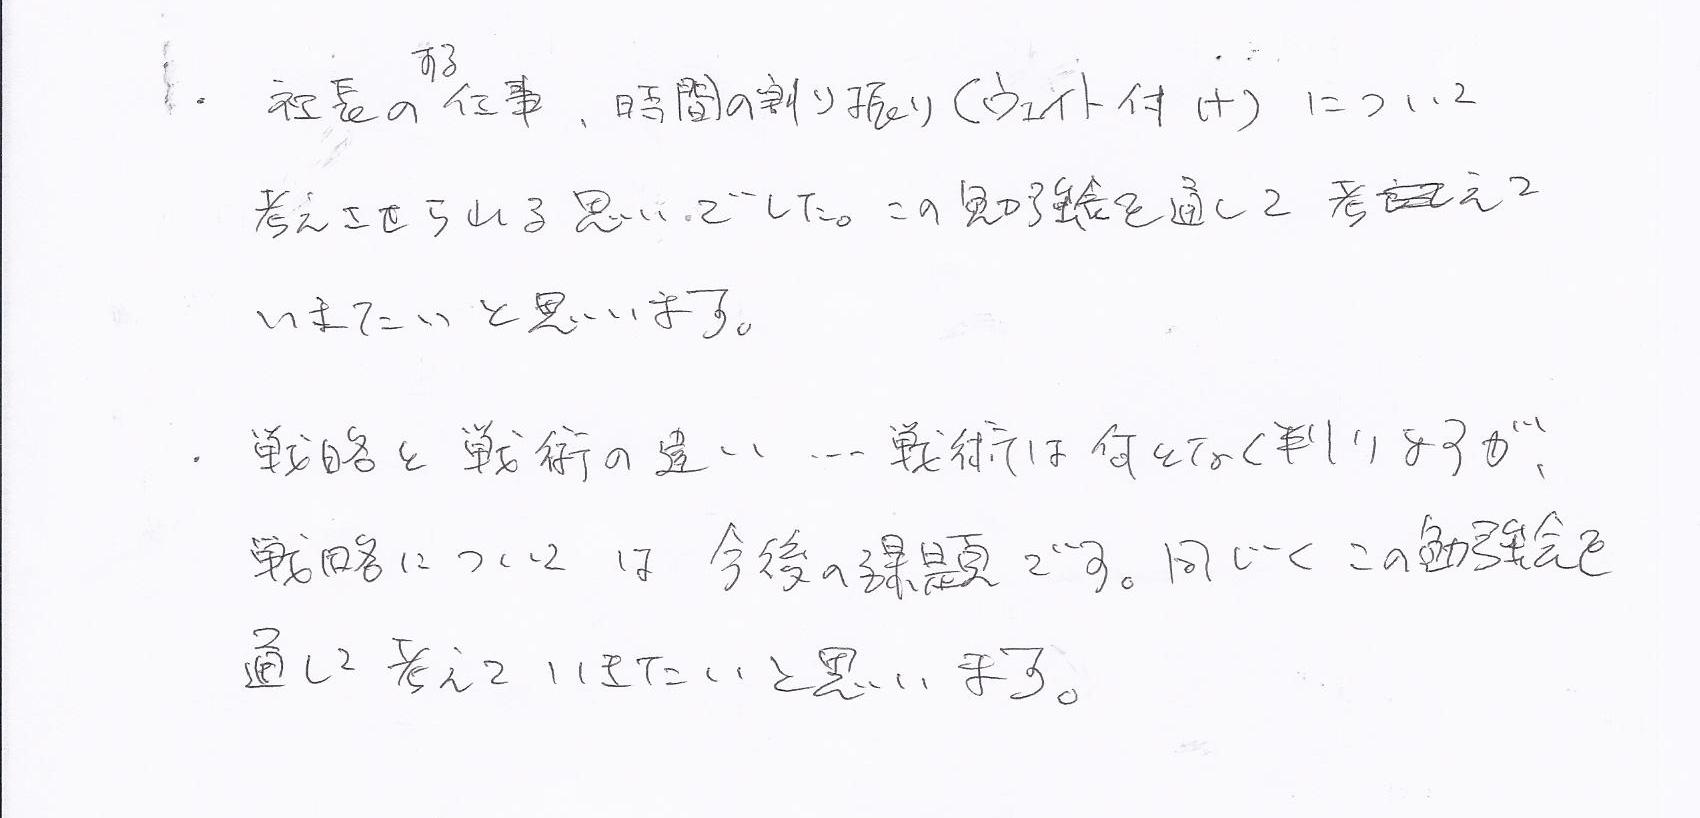 ・社長のする仕事、時間の割り振り(ウェイト付け)について
考えさせられる思いでした。この勉強会を通して考えて
いきたいと思います。
・戦略と戦術の違い…戦術は何となく判りますが、
戦略については今後の課題です。同じくこの勉強会を
通して考えていきたいと思います。